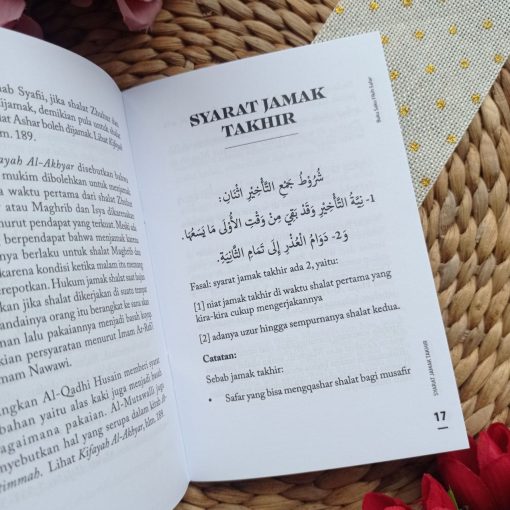 ab Syafii, jika shalat Zhuhur dan
dijamak, demikian pula untuk shalat
at Ashar boleh dijamak. Lihat Kifayah
m. 189.
ayah Al-Akhyar disebutkan bahwa
mukim dibolehkan untuk menjamak
waktu pertama dari shalat Zhuhur
atau Maghrib dan Isya dikarenakan
nurut pendapat yang terkuat. Meski ada
berpendapat bahwa menjamak karena
nya berlaku untuk shalat Maghrib dan
karena kondisi ketika malam itu memang
repotkan. Hukum jamak shalat saat hujan
kan jika shalat dikerjakan di suatu tempat
andainya orang itu berangkat ke sana
lan lalu pakaiannya menjadi basah kuyup.
kan persyaratan menurut Imam Ar-Rafi'i
mam Nawawi.
ngkan Al-Qadhi Husain memberi syarat
bahan yaitu alas kaki juga menjadi basah
bagaimana pakaian. Al-Mutawalli juga
nyebutkan hal yang serupa dalam kitab At-
timmah. Lihat Kifayah Al-Akhyar, hlm. 189.
SYARAT JAMAK
TAKHIR
شُرُوْطُ جَمْعِ التَّأْخِيْرِ اثْنَانِ:
1- نِيَّةُ التَّأْخِيْرِ وَقَدْ بَقِيَ مِنْ وَقْتِ الْأُوْلَى مَا يَسَعُهَا.
وَ2- دَوَامُ الْعُذْرِ إِلَى تَمَامِ الثَّانِيَةِ.
Fasal: syarat jamak takhir ada 2, yaitu:
[1] niat jamak takhir di waktu shalat pertama yang
kira-kira cukup mengerjakannya
[2] adanya uzur hingga sempurnanya shalat kedua.
Catatan:
Sebab jamak takhir:
• Safar yang bisa mengqashar shalat bagi musafir
Buku Saku Fikih Safar
SYARAT JAMAK TAKHIR
17